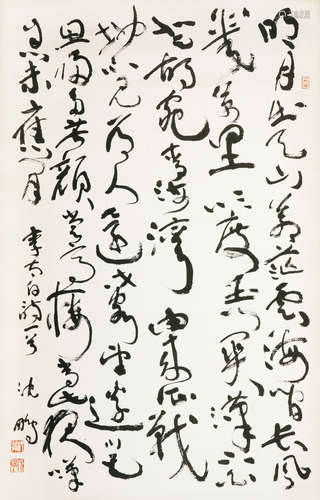 明月出天山蒼茫雲海間長風
幾萬里吹度玉門關漢下白
登道胡窺青海灣由來征戰
地不見有人還戍客望邊
思歸多苦顏高樓當此夜嘆
息未應閒 李太白詩一首 沈鵬